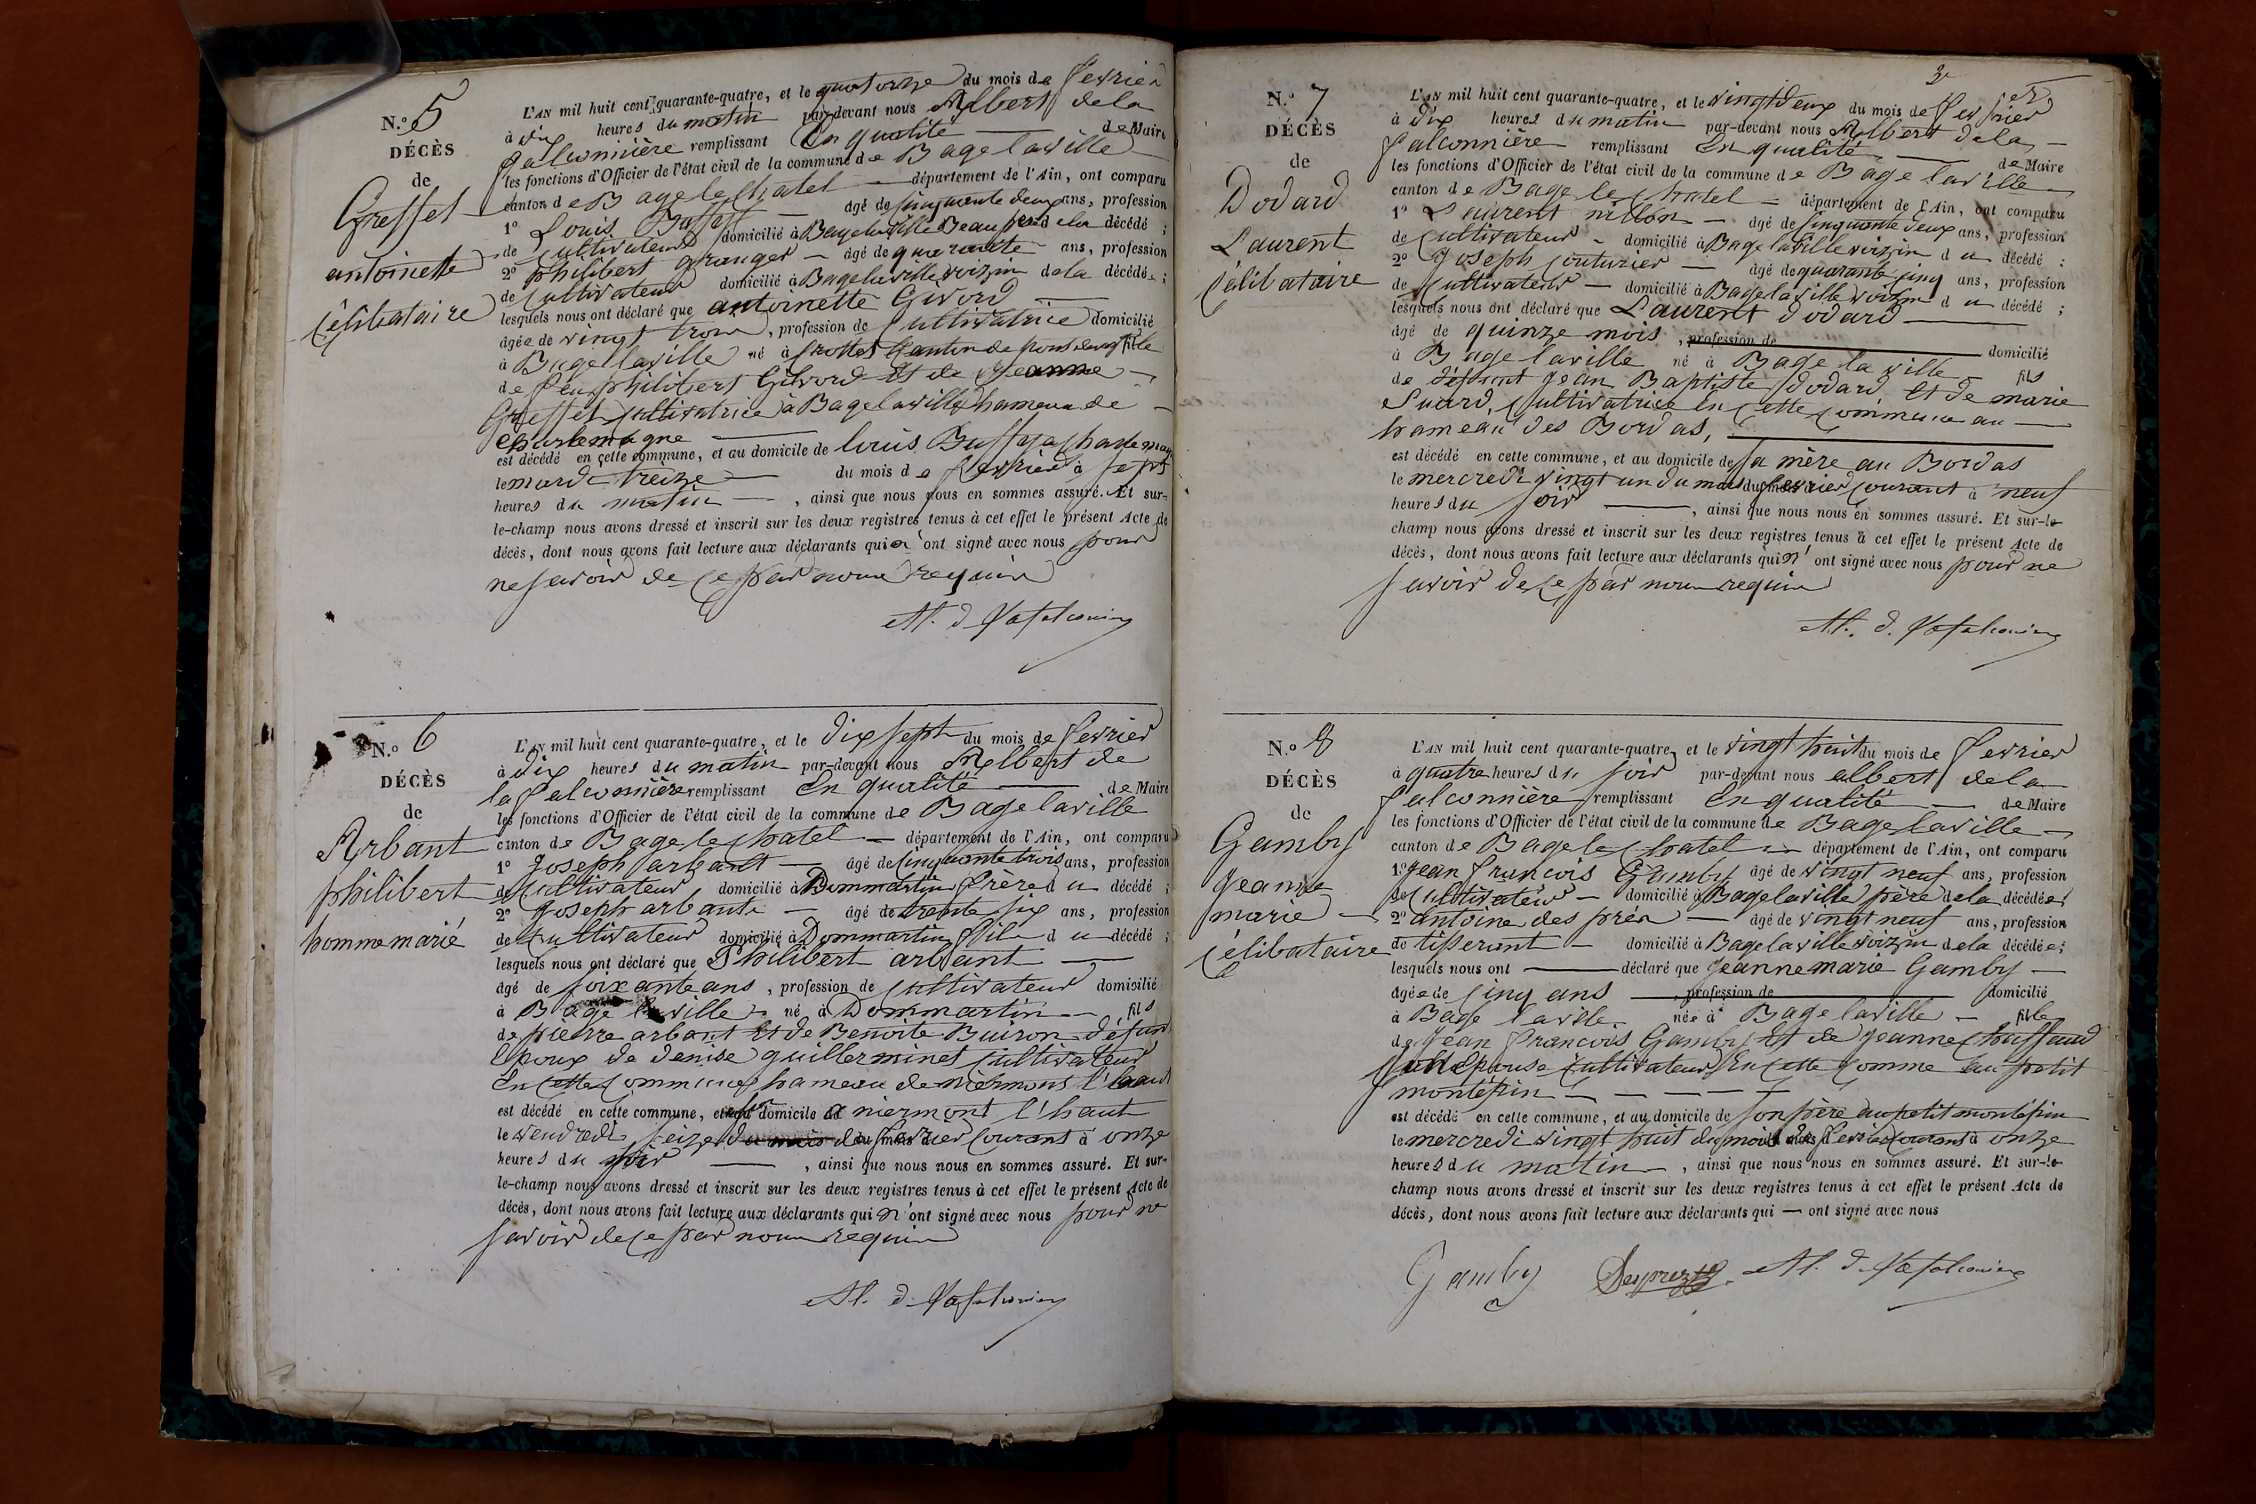 N.o 5
DÉCÈS
de
Greffet
antoinette
Célibataire
L'AN mil huit cent quarante-quatre, et le quatorze du mois de fevrier
à dix heures du matin par-devant nous Albert dela
falconnière remplissant En qualité de Maire
les fonctions d'Officier de l'état civil de la commune de Bage laville
canton de Bage le Chatel département de l'Ain, ont comparu
1o Louis Buffet agé de cinquante deux ans, profession
de Cultivateur domicilié à Bagelaville Beau pere de la décédé ;
2o philibert granger agé de quarante ans, profession
de Cultivateur domicilié à Bagelaville voizin dela décédée ;
lesquels nous ont déclaré que antoinette Givord
agée de vingt trois, profession de Cultivatrice domicilié
à Bage laville né à Crottet Canton de pont de file
de feu philibert Givord Et de Jeanne
Greffet Cultivatrice à Bagelaville hameau de
Charlemagne
est décédé en cette commune, et au domicile de louis Buffy a
le mardi treize du mois de fevrier à sept
heures du matin, ainsi que nous nous en sommes assuré. Et sur-
le-champ nous avons dressé et inscrit sur les deux registres tenus à cet effet le présent Acte de
décès, dont nous avons fait lecture aux déclarants qui n'ont signé avec nous pour
ne savoir de ce par nous requis
Al. d. Lafalconière
N.o 6
DÉCÈS
de
Arbant
philibert
homme marié
L'AN mil huit cent quarante-quatre, et le dix sept du mois de fevrier
à dix heures du matin par-devant nous Albert de
la falconnière remplissant En qualité de Maire
les fonctions d'Officier de l'état civil de la commune de Bage laville
canton de Bage le Chatel département de l'Ain, ont comparu
1o Joseph arbant agé de Cinquante trois ans, profession
de Cultivateur domicilié à Dommartin frère du décédé ;
2o Joseph arbant agé de trente six ans, profession
de Cultivateur domicilié à Dommartin fils du décédé ;
lesquels nous ont déclaré que Philibert arbant
agé de soixante ans, profession de Cultivateur domicilié
à Bage laville né à Dommartin fils
de pierre arbant Et de Benoite Buiron défun
Epoux de denise guillerminet Cultivateur
En Cette Commune hameau de niermont l'haut
est décédé en cette commune, et au domicile de a niermont l'haut
le vendredi seize du mois de fevrier Courant à onze
heures du soir, ainsi que nous nous en sommes assuré. Et sur-
le-champ nous avons dressé et inscrit sur les deux registres tenus à cet effet le présent Acte de
décès, dont nous avons fait lecture aux déclarants qui n'ont signé avec nous pour ne
savoir de ce par nous requis
Al. d. Lafalconière
N.o 7
DÉCÈS
de
Dodard
Laurent
Célibataire
L'AN mil huit cent quarante-quatre, et le vingt deux du mois de fevrier
à dix heures du matin par-devant nous Albert dela
falconnière remplissant En qualité de Maire
les fonctions d'Officier de l'état civil de la commune de Bage laville
canton de Bage le Chatel département de l'Ain, ont comparu
1o Laurent nillon agé de Cinquante deux ans, profession
de Cultivateur domicilié à Bage laville voizin du décédé ;
2o Joseph Couturier agé de quarante cinq ans, profession
de Cultivateur domicilié à Bage laville voizin du décédé ;
lesquels nous ont déclaré que Laurent dodard
agé de quinze mois, profession de domicilié
à Bage laville né à Bage la ville fils
de défunt Jean Baptiste dodard Et de marie
Suard, Cultivatrice En Cette Commune au
hameau des Bordas,
est décédé en cette commune, et au domicile de sa mère au Bordas
le mercredi vingt un du mois du mois de fevrier Courant à neuf
heures du soir, ainsi que nous nous en sommes assuré. Et sur-le-
champ nous avons dressé et inscrit sur les deux registres tenus à cet effet le présent Acte de
décès, dont nous avons fait lecture aux déclarants qui n'ont signé avec nous pour ne
savoir de ce par nous requis
Al. d. Lafalconière
N.o 8
DÉCÈS
de
Gamby
Jeanne
marie
Célibataire
L'AN mil huit cent quarante-quatre, et le vingt huit du mois de fevrier
à quatre heures du soir par-devant nous albert dela
falconnière remplissant En qualité de Maire
les fonctions d'Officier de l'état civil de la commune de Bage laville
canton de Bage le Chatel département de l'Ain, ont comparu
1o Jean francois Gamby agé de vingt neuf ans, profession
de Cultivateur domicilié à Bagelaville père de la décédée ;
2o antoine des prés agé de vingt neuf ans, profession
de tisserant domicilié à Bagelaville voizin dela décédée ;
lesquels nous ont déclaré que Jeanne marie Gamby
agée de Cinq ans, profession de domicilié
à Bage laville née à Bage laville fille
de Jean francois Gamby Et de Jeanne Chuffaud
Epouse Cultivateur En cette Comme au petit
montépin
est décédé en cette commune, et au domicile de son père au petit montépin
le mercredi vingt huit du mois de fevrier Courant à onze
heures du matin, ainsi que nous nous en sommes assuré. Et sur-le-
champ nous avons dressé et inscrit sur les deux registres tenus à cet effet le présent Acte de
décès, dont nous avons fait lecture aux déclarants qui ont signé avec nous
Gamby Desprez Al. d. Lafalconière